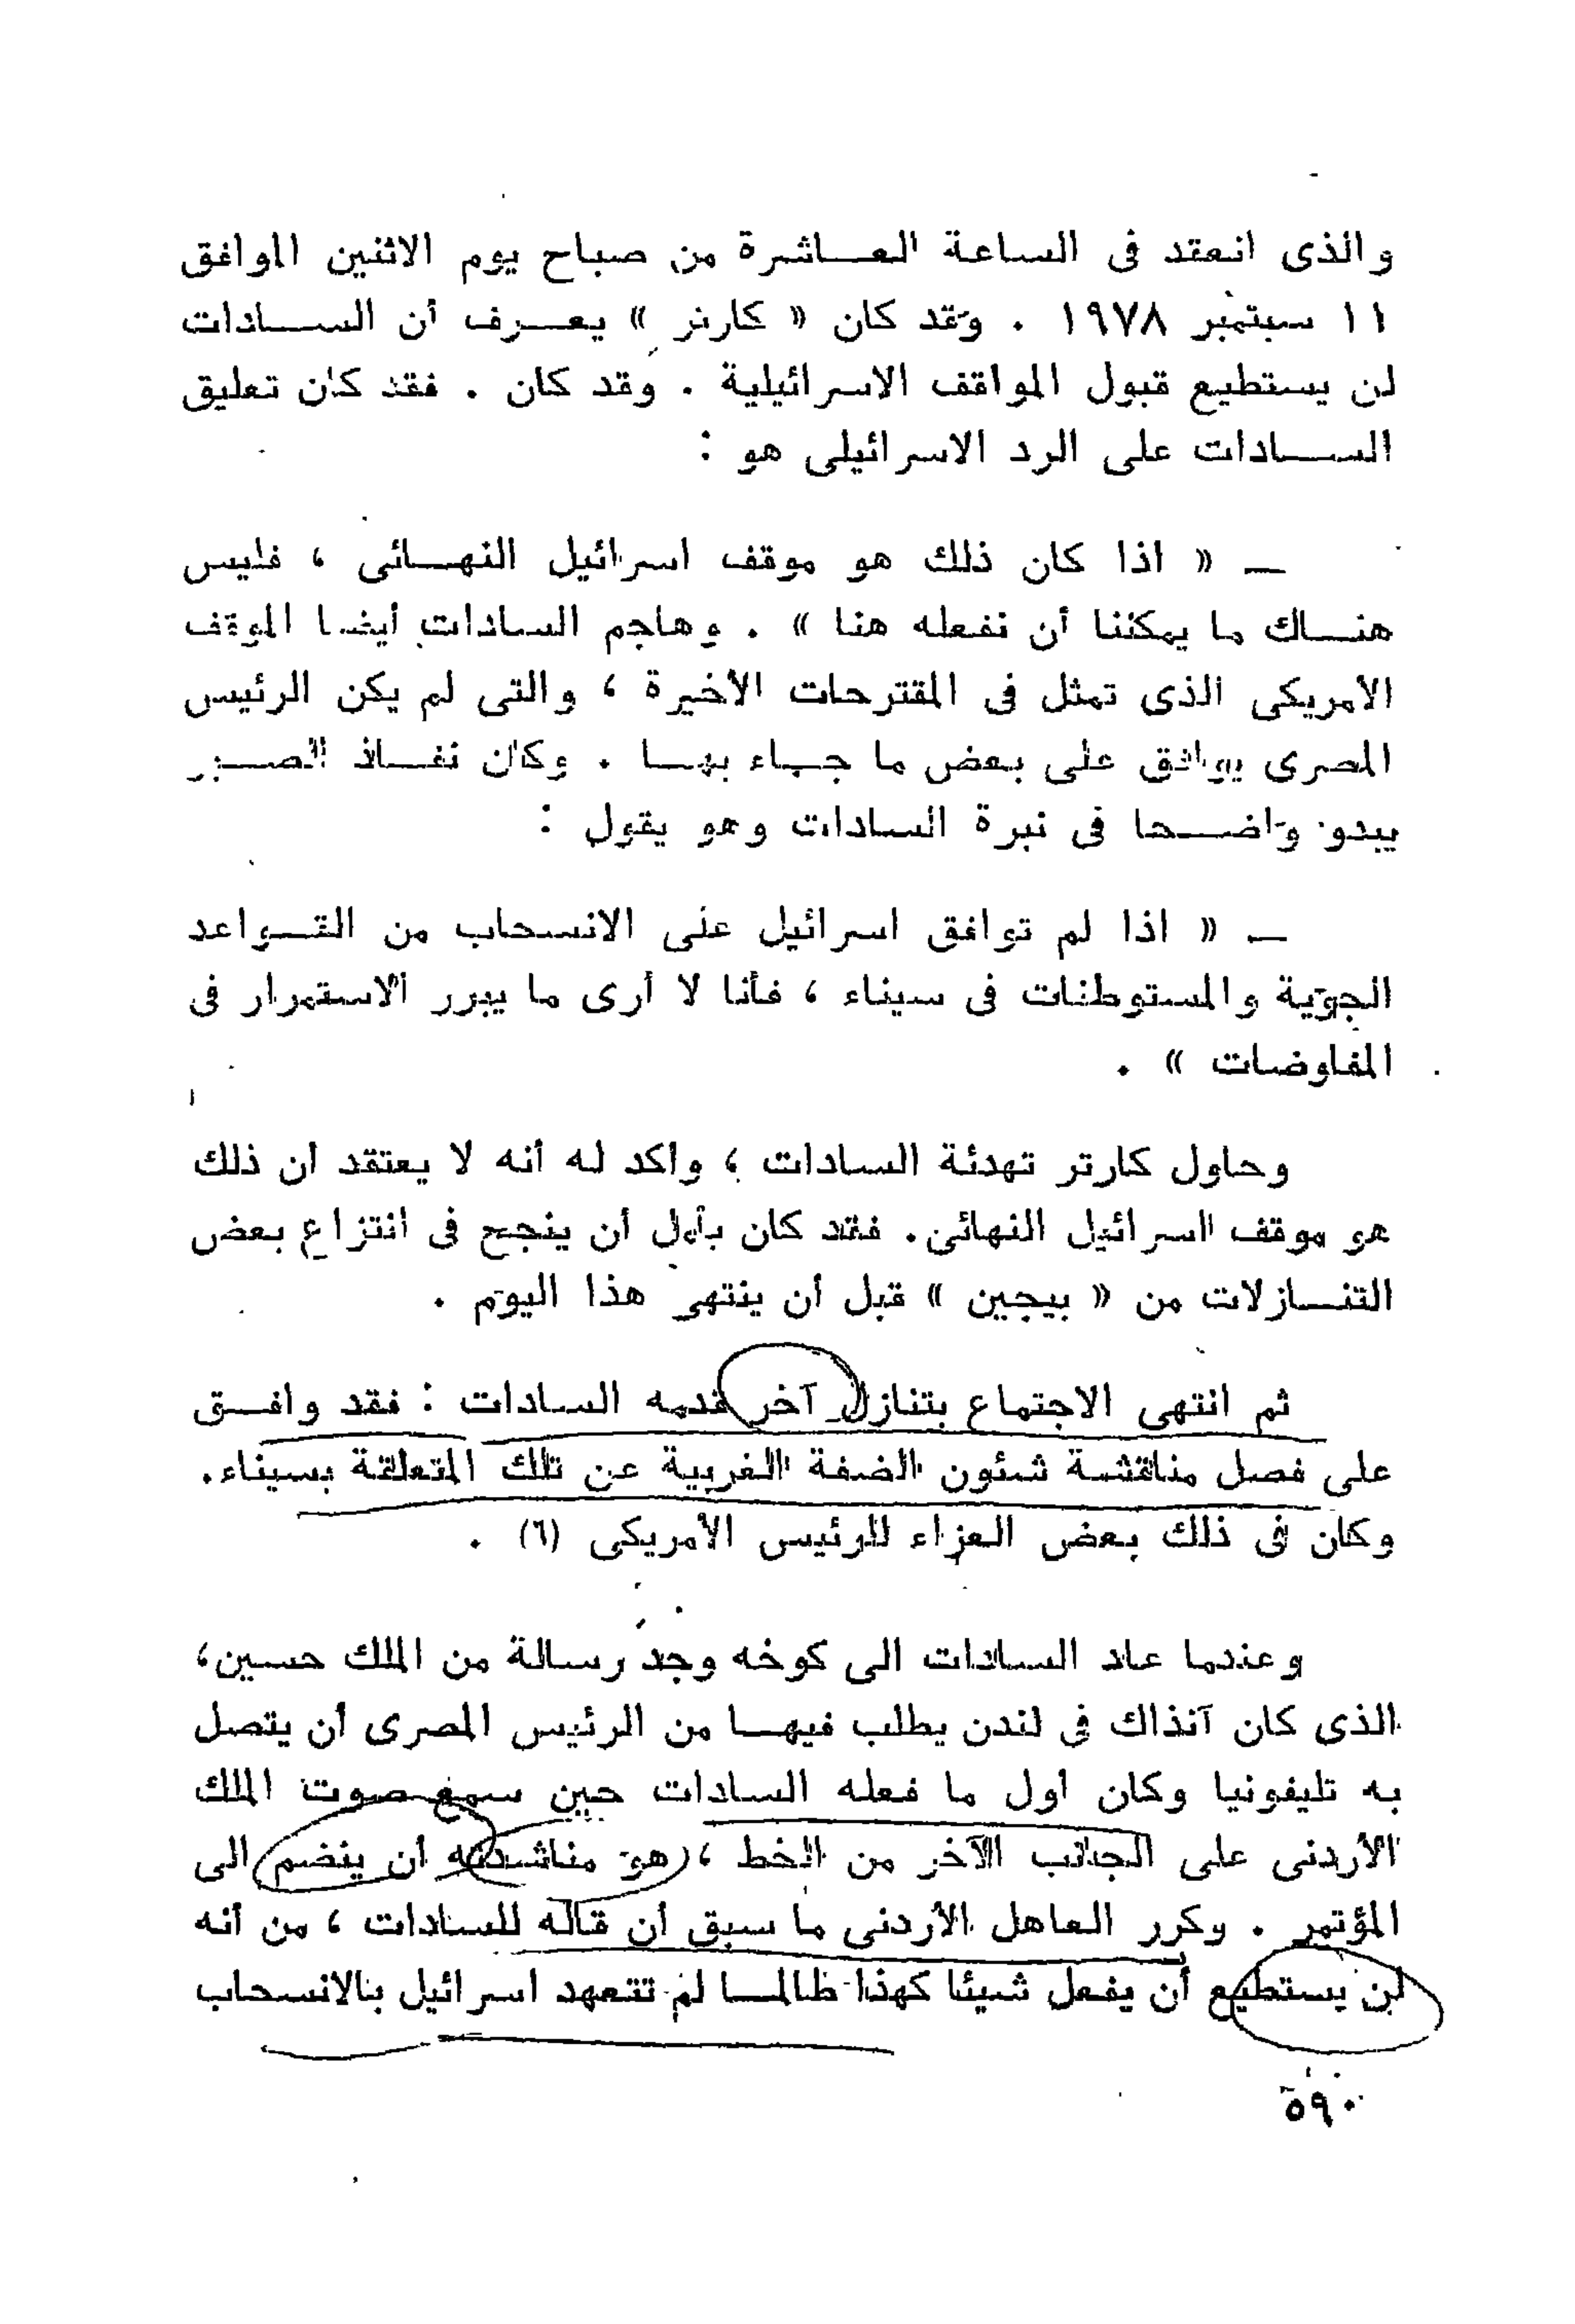 والذى انعقد فى الساعة العاشرة من صباح يوم الاثنين الموافق
١١ سبتمبر ١٩٧٨ . وقد كان « كارتر » يعرف أن السادات
لن يستطيع قبول المواقف الاسرائيلية . وقد كان . فقد كان تعليق
السادات على الرد الاسرائيلى هو :
— « اذا كان ذلك هو موقف اسرائيل النهائى ، فليس
هناك ما يمكننا أن نفعله هنا » . وهاجم السادات أيضا الموقف
الأمريكى الذى تمثل فى المقترحات الأخيرة ، والتى لم يكن الرئيس
المصرى يوافق على بعض ما جاء بها . وكان نفاذ الصبر
يبدو واضحا فى نبرة السادات وهو يقول :
— « اذا لم توافق اسرائيل على الانسحاب من القواعد
الجوية والمستوطنات فى سيناء ، فأنا لا أرى ما يبرر الاستمرار فى
المفاوضات » .
وحاول كارتر تهدئة السادات ، وأكد له أنه لا يعتقد أن ذلك
هو موقف اسرائيل النهائى. فقد كان يأمل أن ينجح فى انتزاع بعض
التنازلات من « بيجين » قبل أن ينتهى هذا اليوم .
ثم انتهى الاجتماع بتنازل آخر قدمه السادات : فقد وافق
على فصل مناقشة شئون الضفة الغربية عن تلك المتعلقة بسيناء.
وكان فى ذلك بعض العزاء للرئيس الأمريكى (٦) .
وعندما عاد السادات الى كوخه وجد رسالة من الملك حسين،
الذى كان آنذاك فى لندن يطلب فيها من الرئيس المصرى أن يتصل
به تليفونيا وكان أول ما فعله السادات حين سمع صوت الملك
الأردنى على الجانب الآخر من الخط ، هو مناشدته أن ينضم الى
المؤتمر . وكرر العاهل الأردنى ما سبق أن قاله للسادات ، من أنه
لن يستطيع أن يفعل شيئا كهذا طالما لم تتعهد اسرائيل بالانسحاب
٥٩٠